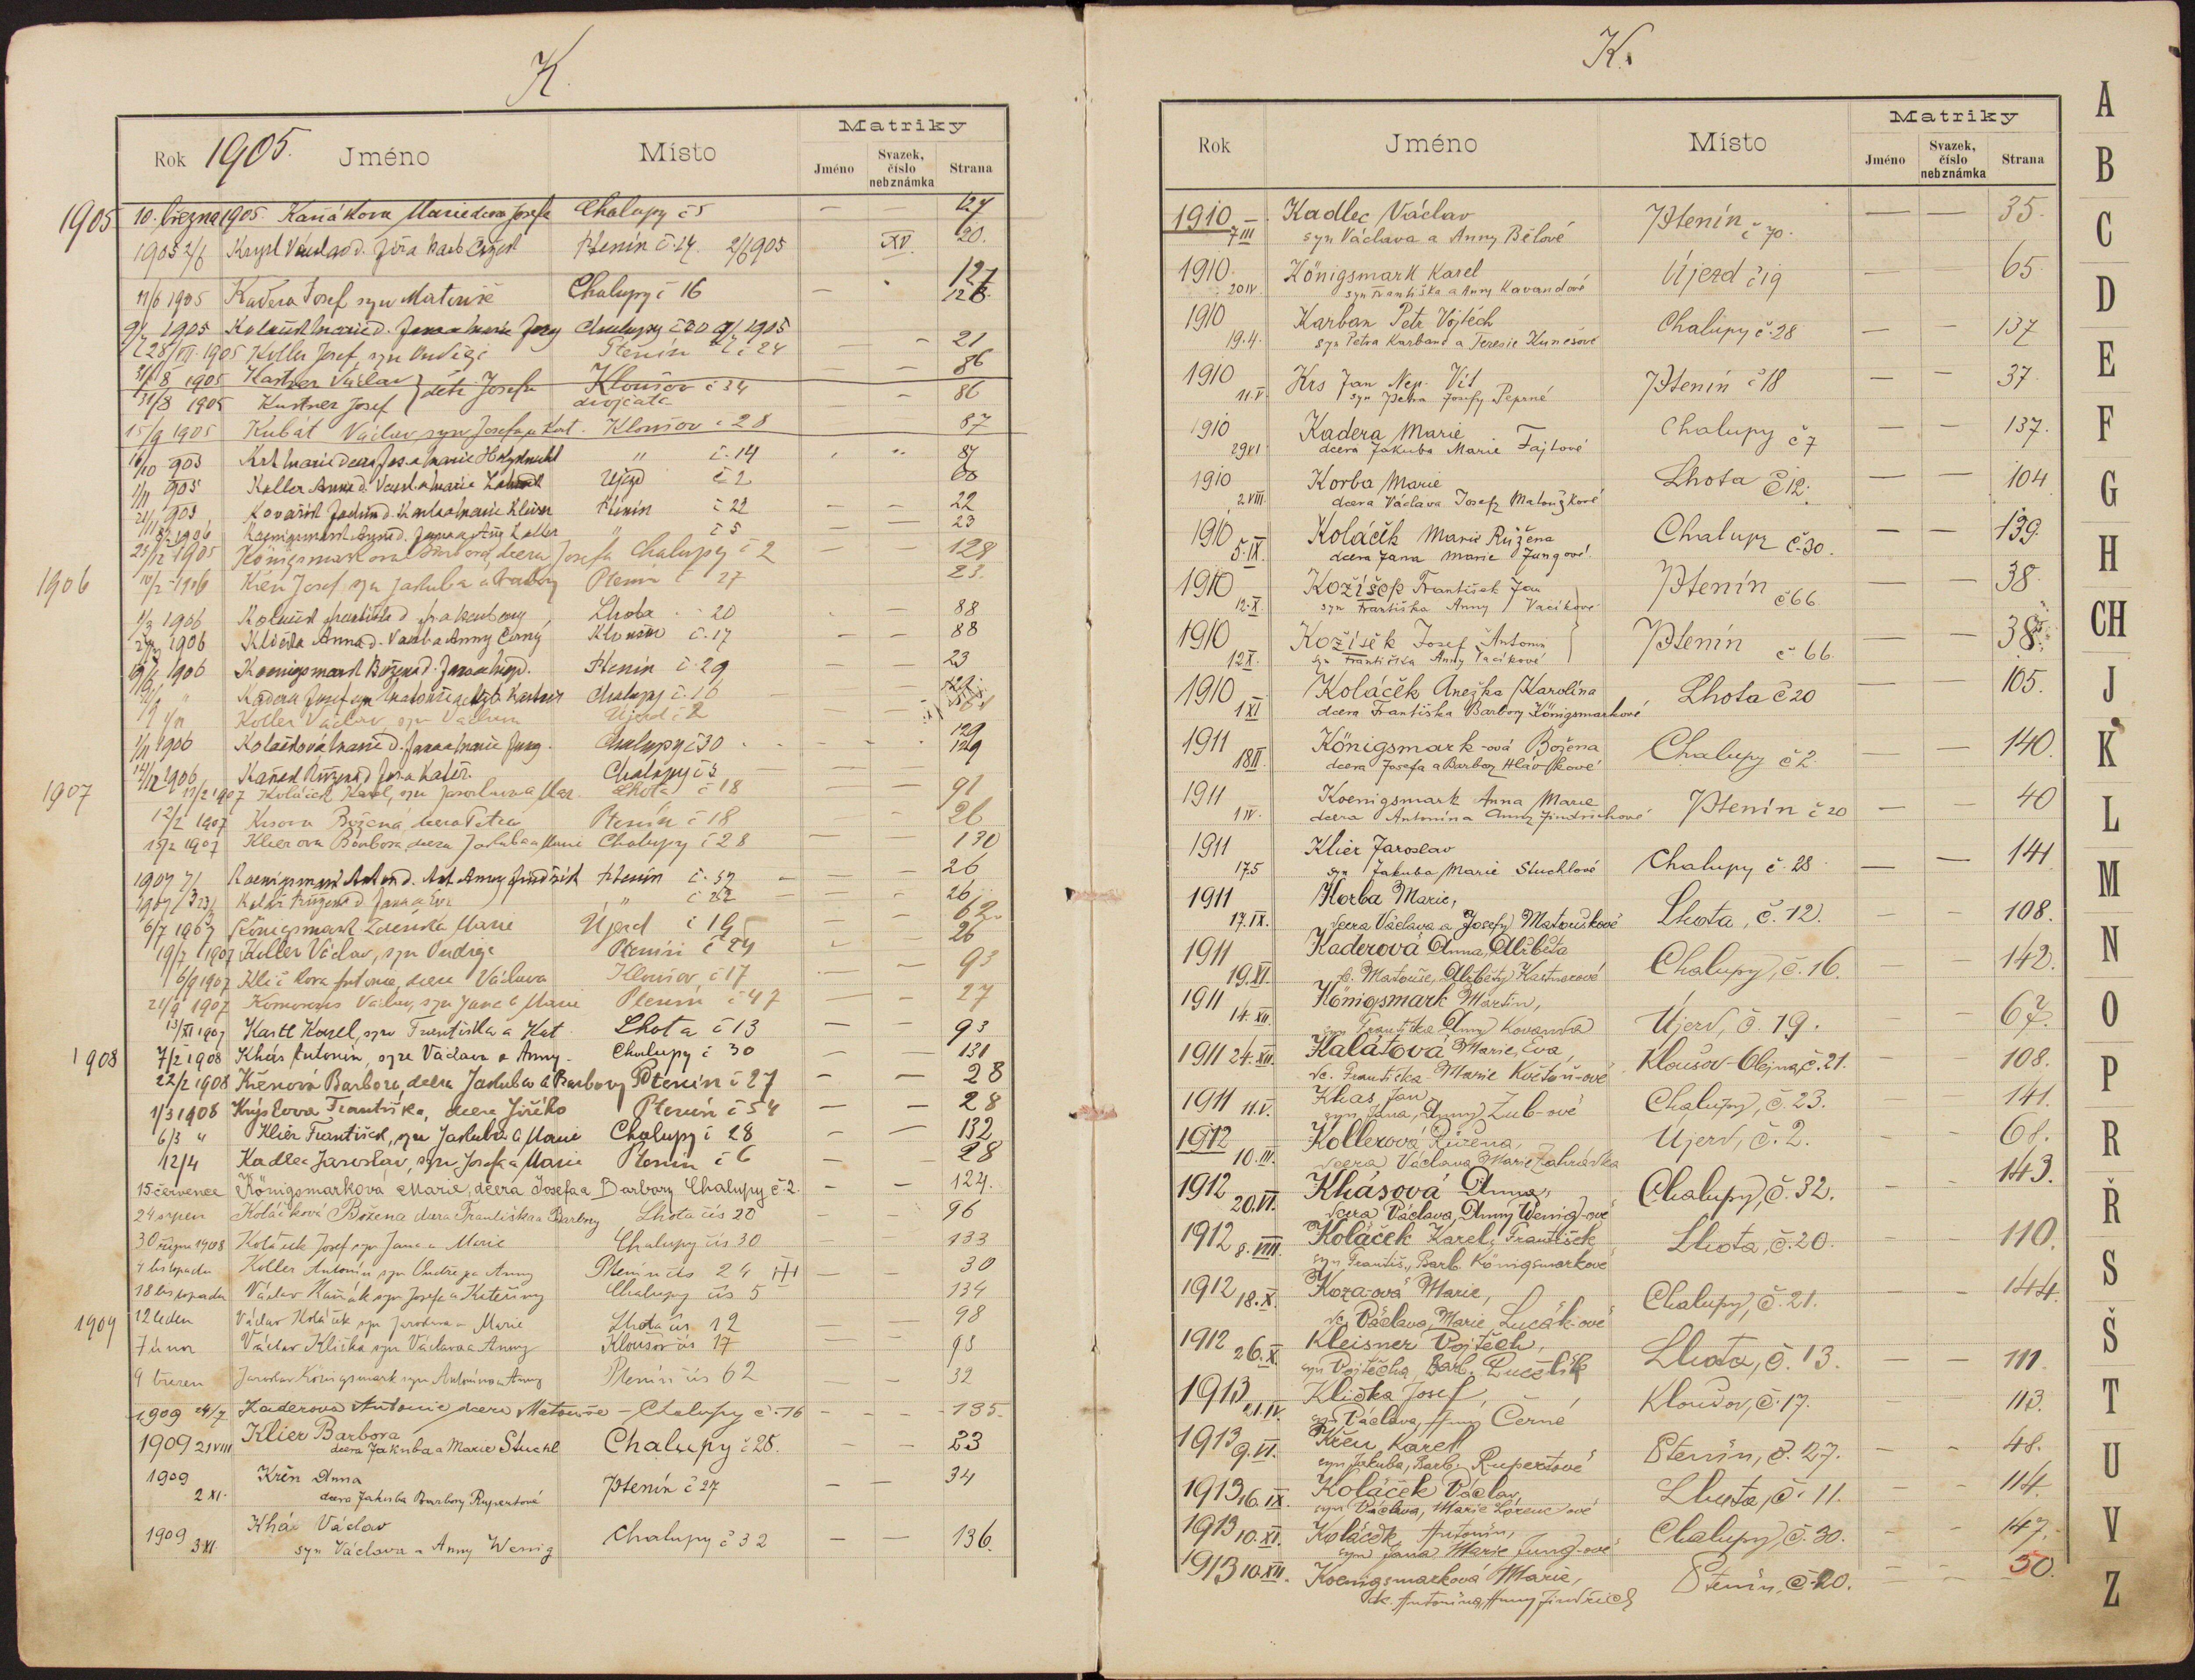 K.
Rok 1905. Jméno Místo Matriky
Jméno Svazek, číslo neb známka Strana
1905 10. března 1905. Kaňákova Marie dcera Josefa Chalupy č 5 — — 127
1905 2/6 Václav d. Jiřa Ptenín č. 14. 2/6 1905 XV. 20.
11/6 1905 Kadera Josef syn Matouše Chalupy č 16 — 127
128.
9/7 1905 Chalupy č 30 9/7 1905
28/VII. 1905 Koller Josef, syn Ondřeje Ptenín č 24 — — 21
31/8 1905 Kastner Václav } děti Josefa Kloušov č 34 — — 86
31/8 1905 Kastner Josef dvojčata — 86
15/9 1905 Kubát Václav syn Josefa a Kat. Kloušov č 28 87
16/10 905 Marie dcera Jos. a Marie " č. 14 87
1/11 905 Koller Anna d. Václ. a Marie Újezd č 2 60
21/11 905 Kovařík Ptenín č 22 — — 22
1906 Koenigsmark " č 5 — — 23
25/12 1905 Königsmarkova Barbora, dcera Josefa Chalupy č 2 — — 128
1906 10/2 1906 Křen Josef syn Jakuba a Barbory Ptenín č 27 — — 23.
1/3 1906 Lhota 20 — 88
1906 Klička Anna d. Václ. a Anny Černý Kloušov č. 17 — — 88
1906 Koenigsmark Božena d. Ptenín č. 29 — — 23
Kadera Josef syn Matouše a Alžb. Kastner Chalupy č. 16 —
Koller Václav, syn Václava Újezd č 2 — —
1/11 1906 Koláčková Marie d. Jana a Marie Jung. Chalupy č 30 129
14/12 1906 Kaňák Růžena d. Jos. a Kateř. Chalupy č 5 — — — 129
1907 11/2 1907 Koláček Karel, syn Jaroslava a Mar. Lhota č 18 — — 91
12/2 1907 Krsova Božena, dcera Petra Ptenín č 18 — 26
15/2 1907 Klierova Barbora, dcera Jakuba a Marie Chalupy č 28 — — 130
1907 7/ Koenigsmark Ant. Anny Jindřich Ptenín č. — — 26
1907 Kolář Růžena d. Jana " č 22 — — 26
6/7 1907 Königsmark Zdeňka Marie Újezd č 19 62.
19/7 1907 Koller Václav, syn Ondřeje Ptenín č 24 — — 26
6/9 1907 Kličkova Antonie, dcera Václava Kloušov, č 17 — — 93
21/9 1907 Václav, syn Jana a Marie Ptenín č 47 — — 27
13/XI 1907 Karel, syn Františka a Kat. Lhota č 13 — — 93
1908 7/2 1908 Khás Antonín, syn Václava a Anny. Chalupy č 30 — — 131
22/2 1908 Křenová Barbora, dcera Jakuba a Barbory Ptenín č 27 — — 28
1/3 1908 Kryslova Františka, dcera Jiřího Ptenín č 54 — — 28
6/3 " Klier František, syn Jakuba a Marie Chalupy č 28 — — 132
12/4 Kadlec Jaroslav, syn Josefa a Marie Ptenín č 6 — — 28
15 července Königsmarková Marie, dcera Josefa a Barbory Chalupy č. 2. — — 124.
24 srpen Koláčková Božena dcera Františka a Barbory Lhota čís 20 — — 96
30 října 1908 Koláček Josef syn Jana a Marie Chalupy čís 30 — — 133
4 listopadu Koller Antonín syn Ondřeje a Anny Ptenín čís 24 — — 30
18 listopadu Václav Kaňák syn Josefa a Kateřiny Chalupy čís 5 — — 134
1909 12 leden Václav Koláček syn Jaroslava a Marie Lhota čís 12 — — 98
7 únor Václav Klička syn Václava a Anny Kloušov čís 17 — — 98
9 březen Jaroslav Königsmark syn Antonína a Anny Ptenín čís 62 — — 32
1909 24/7 Kaderova Antonie, dcera Matouše — Chalupy č. 16 — — — 135.
1909 21 VIII Klier Barbora
dcera Jakuba a Marie Stuchl Chalupy č 28. — — 23
1909 2 XI. Křen Anna
dcera Jakuba Barbory Rupertové Ptenín č 27 — — 34
1909 3 XI. Khás Václav
syn Václava a Anny Wenig Chalupy č 32 — — 136.
K.
Rok Jméno Místo Matriky
Jméno Svazek, číslo neb známka Strana
1910 7 III Kadlec Václav
syn Václava a Anny Bělové Ptenín č 70. — — 35.
1910. 20 IV. Königsmark Karel
syn Františka a Anny Kavandové Újezd č 19 — — 65
1910 19. 4. Karban Petr Vojtěch
syn Petra Karbana a Terezie Kunešové Chalupy č. 28 — — 137
1910 11. V. Krs Jan Nep. Vít
syn Petra Josefy Peprné Ptenín č 18 — — 37
1910 29 VI Kadera Marie
dcera Jakuba Marie Fajtové Chalupy č 7 — — 137.
1910 2. VIII Korba Marie
dcera Václava Josefy Matouškové Lhota č 12. — — 104
1910 5. IX. Koláček Marie Růžena
dcera Jana Marie Jungové Chalupy č. 30. — — 139.
1910 12. X. Kožíšek František Jan
syn Františka Anny Vacíkové Ptenín č 66. — — 38.
1910 12 X. Kožíšek Josef Antonín
syn Františka Anny Vacíkové Ptenín č. 66. — — 38.
1910 1 XI Koláček Anežka Karolína
dcera Františka Barbory Königsmarkové Lhota č 20 — — 105.
1911 18 II. Königsmark-ová Božena
dcera Josefa a Barbory Hlávkové Chalupy č 2. — — 140.
1911 1 IV. Koenigsmark Anna Marie
dcera Antonína Anny Jindrichové Ptenín č 20 — — 40
1911 17. 5 Klier Jaroslav
syn Jakuba Marie Stuchlové Chalupy č. 28. — — 141
1911 17. IX. Korba Marie,
dcera Václava a Josefy Matouškové Lhota, č. 12. — — 108.
1911 19. XI. Kaderová Anna, Alžběta
dc. Matouše, Alžběty Kastnerové Chalupy, č. 16. — 142.
1911 14. XII. Königsmark Martin,
syn Františka Anny Kovanda Újezd, č. 19. — — 67.
1911 24. XII. Kalátová Marie, Eva,
dc. Františka Marie Květoň-ové Kloušov-Olejna, č. 21. 108.
1911 11. V. Khas Jan,
syn Jana, Anny Zub-ové Chalupy, č. 23. — — 141.
1912 10. III. Kollerová Růžena,
dcera Václava Marie Zahrádka Újezd, č. 2. — — 68.
1912 20. VI. Khásová Anna,
dcera Václava, Anny Wenig-ové Chalupy, č. 32. — — 143.
1912 8. VIII. Koláček Karel, František
syn Františ., Barb. Königsmarkové Lhota, č. 20. — — 110.
1912 18. X. Koza-ová Marie,
dc. Václava, Marie Lucák-ové Chalupy, č. 21. — — 144.
1912 26. X. Kleisner Vojtěch,
syn Vojtěcha, Barb. Lhota, č. 13. — — 111.
1913 21. IV. Klička Josef,
syn Václava, Anny Černé Kloušov, č. 17. — — 113.
1913 9. VI. Křen Karel
syn Jakuba, Barb. Rupertové Ptenín, č. 27. — — 48.
1913 16. IX. Koláček Václav,
syn Václava, Marie Lorenc-ové Lhota, č. 11. — — 114.
1913 10. XI. Koláček Antonín,
syn Jana Marie Jung-ové Chalupy, č. 30. — — 147.
1913 10. XII. Koenigsmarková Marie,
dc. Antonína, Anny Jindřich Ptenín, č. 20. — — 50.
A
B
C
D
E
F
G
H
CH
J
K
L
M
N
O
P
R
Ř
S
Š
T
U
V
Z